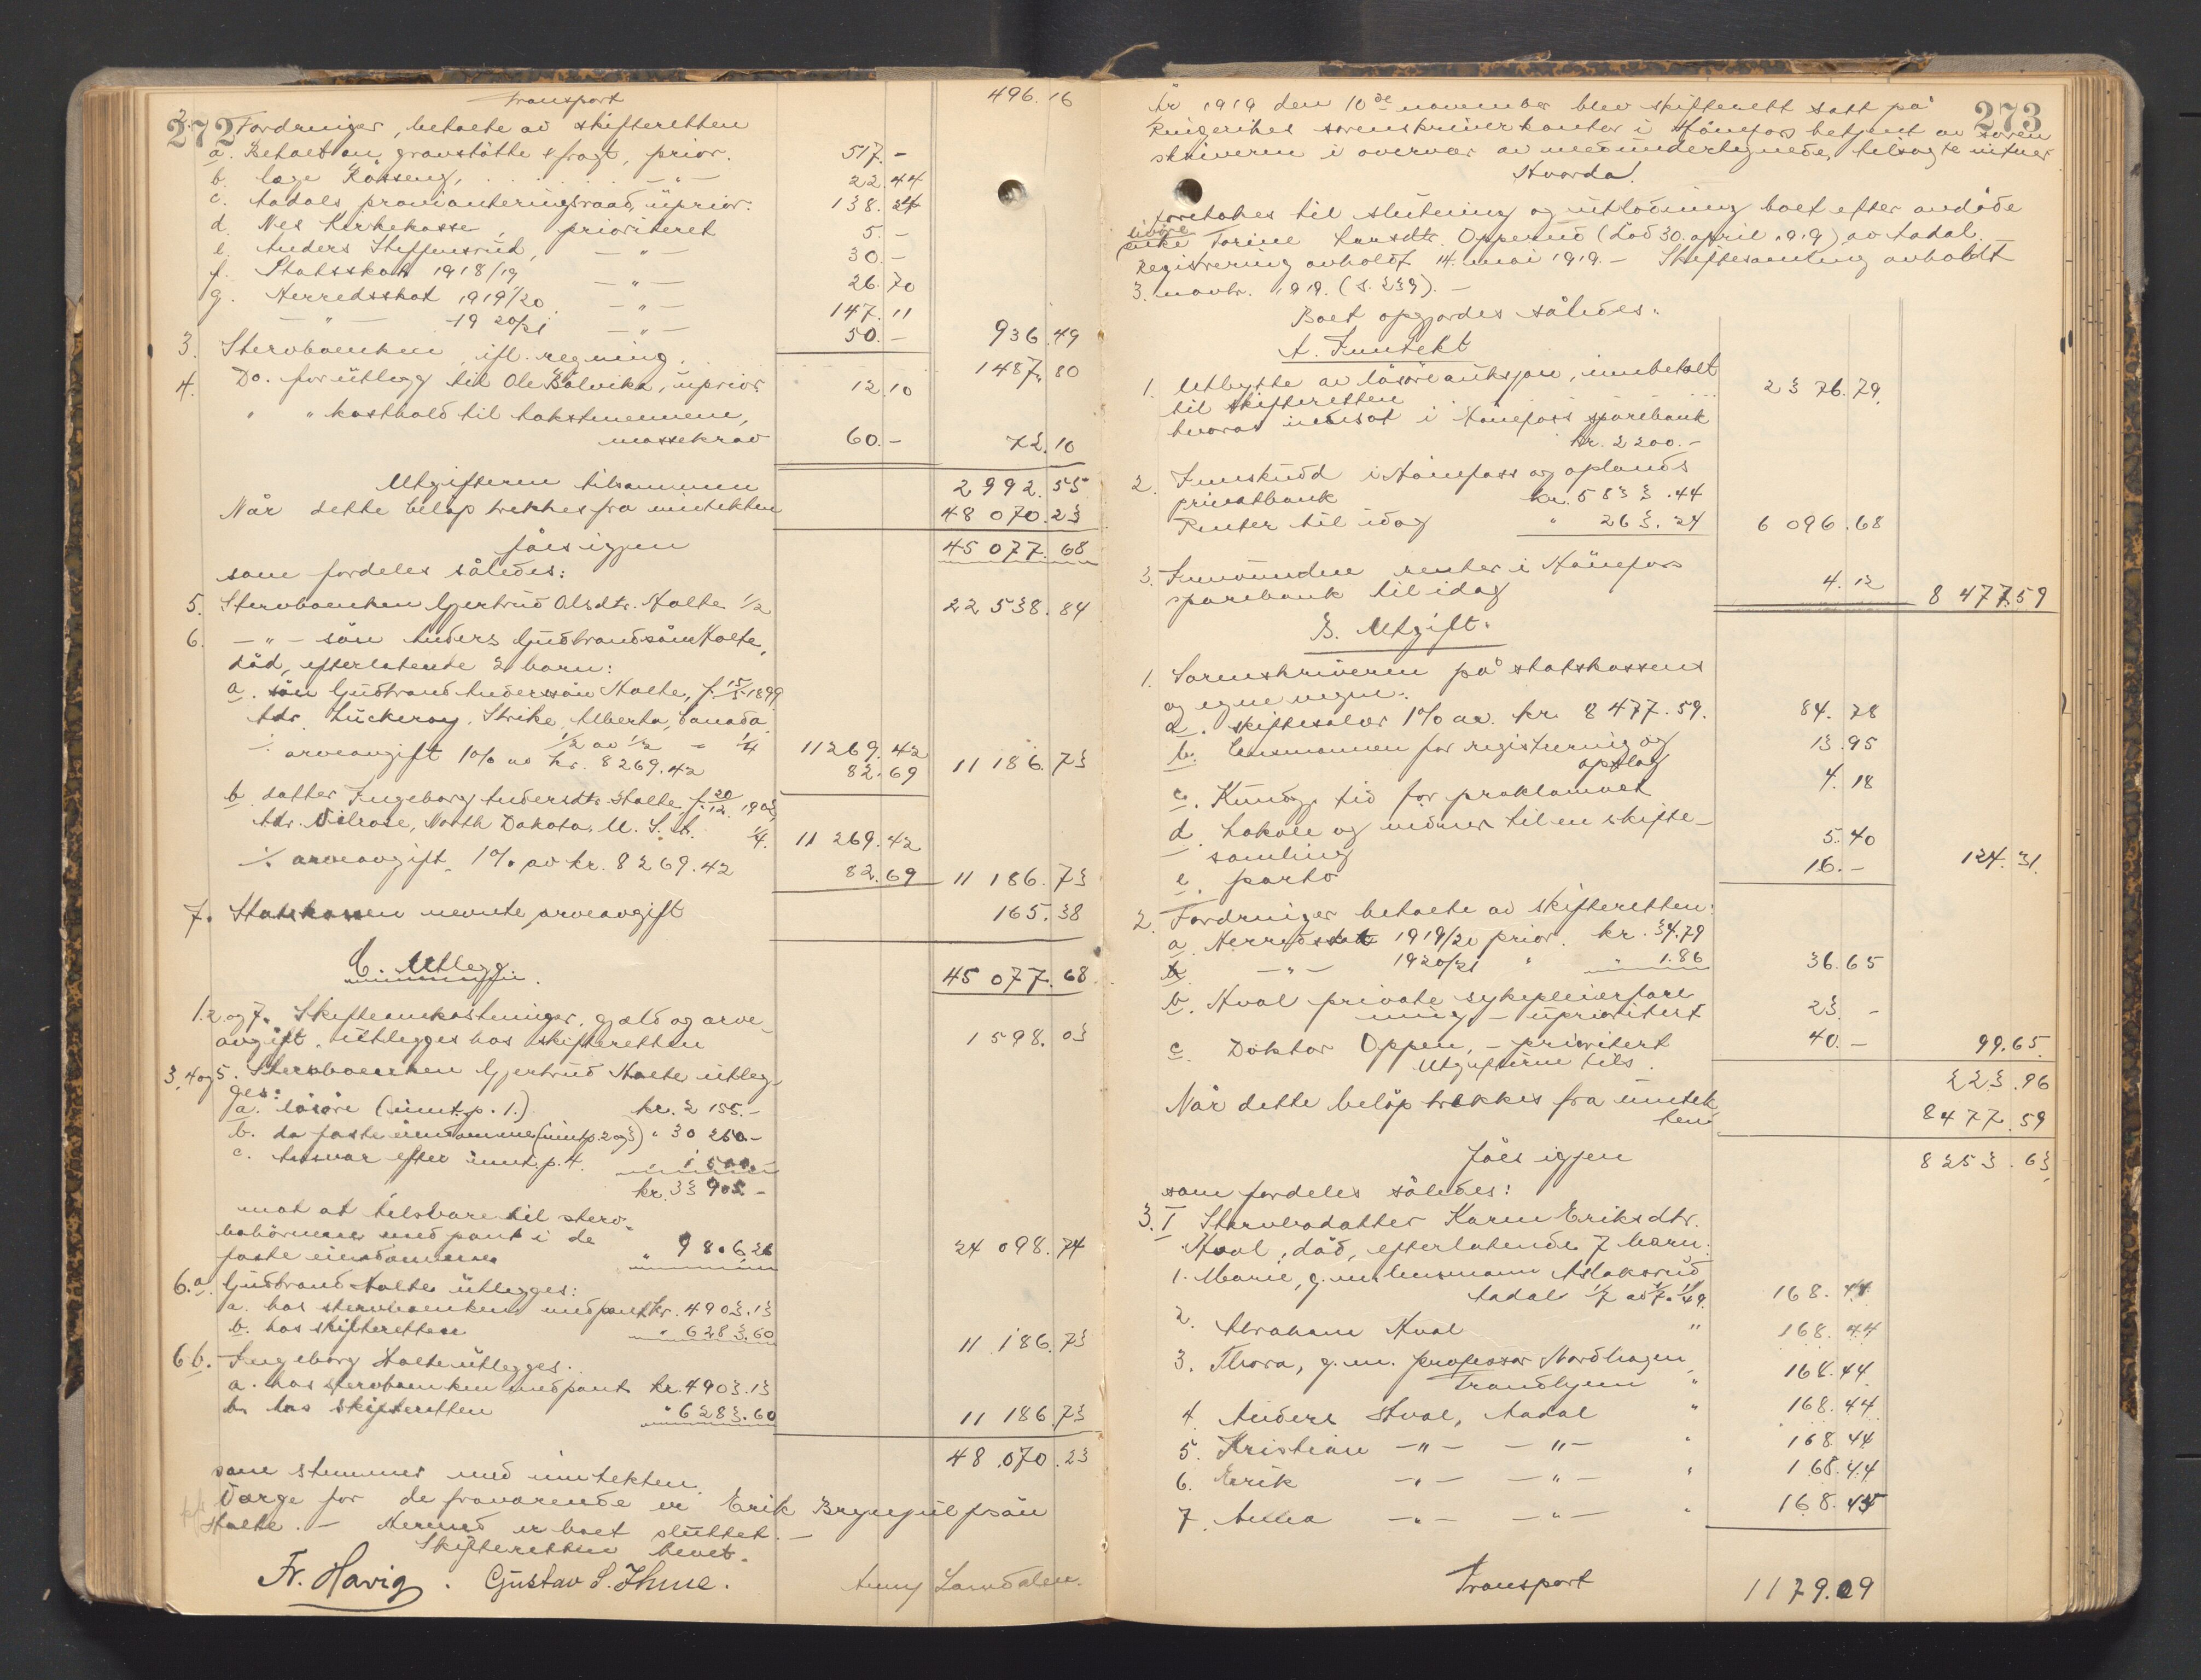 272
Transport 496.16
2. Fordringer, betalte av skifteretten
a. Betalt en gravstötte & fragt, prior. 517.-
b. læge Rösseng, - " - 22.44
c. Aadals provianteringsraad, uprior. 138.24
d. Nes Kirkekasse, prioritert 5.-
e. Anders Steffensrud, - " - 30.-
f. Statsskat 1918/19 - " - 26.70
g. Herredsskat 1919/20 - " - 147.11
- " - 1920/21 - " - 50.- 936.49
3. Stervboenken, ifl. regning. 1487.80
4. Do. for utlegg til Ole Bölvika, uprior 12.10
" " kosthold til takstmennene,
massekrav 60.- 72.10
Utgifterne tilsammen 2992.55
Når dette belöp trekkes fra inntekten 48 070.23
fåes igjen 45 077.68
som fordeles således:
5. Stervboenken Gjertrud Olsdtr. Holte 1/2 22 538.84
6. - " - sön Anders Gudbrandsön Holte,
död, efterlatende 2 barn:
a. sön Gudbrand Anderssön Holte, f. 15/5 1899
Adr. Luckeroy, Strike, Alberta, Canada
1/2 av 1/2 = 1/4 11269.42
÷ arveavgift 1% av kr. 8269.42 82.69 11 186.73
b. datter Ingeborg Andersdtr. Holte f. 20/12 1902,
Adr. Vilrose, North Dakota, U.S.A. 1/4. 11 269.42
÷ arveavgift 1% av kr. 8269.42 82.69 11 186.73
7. Statskassen nevnte arveavgift 165.38
45 077.68
C. Utlegg.
1.2 og 7. Skifteomkostninger, gjeld og arve-
avgift, utlegges hos skifteretten 1598.03
3, 4 og 5. Stervboenken Gjertrud Holte utleg-
ges:
a. lösöre (innt. p. 1.) kr. 2 155.-
b. de faste eiendomme (innt p. 2 og 3) " 30 250.-
c. Ansvar efter innt. p. 4. " 1 500.-
kr. 33 905.-
mot at tilsvare til sterv-
bohörmene med pant i de
faste eiendommene " 9806.26 24 098.74
6.a. Gudbrand Holte utlegges:
a. hos stervboenken med pant kr. 4903.13
b. hos skifteretten " 6283.60 11 186.73
6 b. Ingeborg Holte utlegges:
a. hos stervboenken med pant kr. 4903.13
b. hos skifteretten " 6283.60 11 186.73
48 070.23
som stemmer med inntekten.
Verge for de fraværende er Erik Brynjulfsön
Holte. - Hermed er boet sluttet. -
Skifteretten hevet.
Fr. Havig. Gustav S. Ihme. Anny Landalen.
273
År 1919 den 10de november blev skifterett satt på
Ringerikes sorenskriverkontor i Hönefoss betjent av soren
skriveren i overvær av medundertegnede, tilsagte vitner
Hvorda!
foretokes til slutning og utlodning boet efter avdöde
livöre
enke Torine Larsdtr. Opperud (död 30. april 1919) av Aadal.
Registrering avholdt 14. mai 1919. - Skiftesamling avholdt
3. novbr. 1919. (s. 239). -
Boet opgjordes således:
A. Inntekt
1. Utbytte av lösöreauksjon, innbetalt
til skifteretten 2376.79.
hvorav innsat i Hönefoss sparebank
kr. 2200.-
2. Innskudd i Hönefoss og oplands
privatbank kr. 5833.44
Renter til idag " 263.24 6 096.68
3. Innvundne renter i Hönefoss
sparebank til idag 4.12 8 477.59
B. Utgift.
1. Sorenskriveren på statskassens
og egne vegne.
a. skiftesalær 1% av kr. 8477.59. 84.78
b. Lensmannen for registrering og
opslag 13.95
c. Kundgj. tid for proklamaet 4.18
d. Lokale og vidner til en skifte-
samling 5.40
e. porto 16.- 124.31.
2. Fordringer betalte av skifteretten:
a. Herredsskat 1919/20 prior. kr. 34.79
- " - 1920/21 " " 1.86 36.65
b. Hval private sykepleierfore
ning - uprioritert 23.-
c. Doktor Oppen, - prioritert 40.- 99.65
Utgifterne tils. 223.96
Når dette belöp trekkes fra inntek
ten 8477.59
fåes igjen 8253.63
som fordeles således:
3. I Stervbodatter Karen Eriksdtr.
Hval, död, efterlatende 7 barn:
1. Marie, g.m. lensmann Aslaksrud
Aadal 1/7 av 1/7 = 1/49. 168.44
2. Abraham Hval " 168.44
3. Thora, g.m. professor Nordhagen,
Trondhjem " 168.44
4. Anders Hval, Aadal " 168.44
5. Kristian - " - - " - " 168.44
6. Eerik - " - - " - " 168.44
7. Anna - " - - " - " 168.45
Transport 1179.09